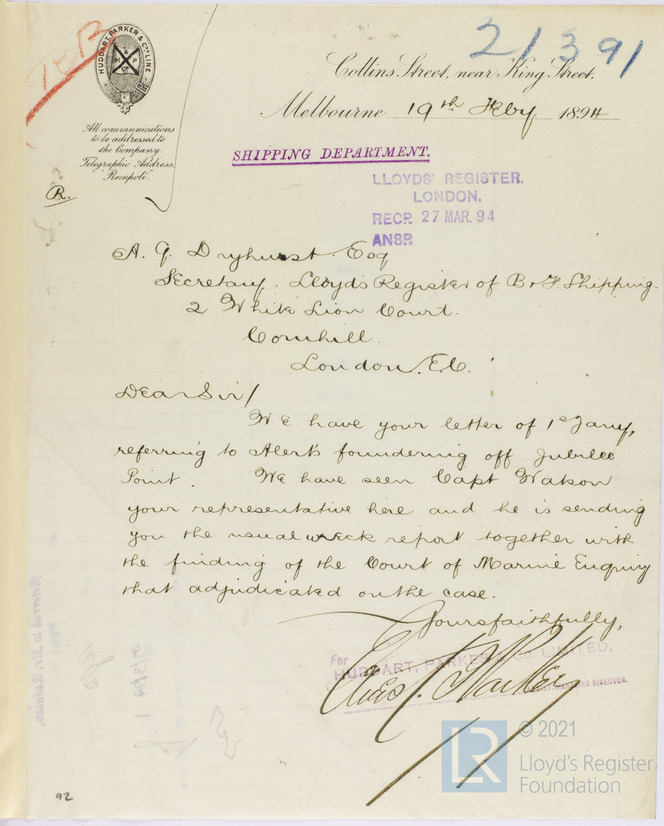 21391
HUDDART, PARKER & Co's LINE
Collins Street, near King Street.
Melbourne 19th Feby 1894
All communications
to be addressed to
the Company.
Telegraphic Address,
"Rompoti".
R.
SHIPPING DEPARTMENT.
LLOYDS' REGISTER.
LONDON.
RECD. 27 MAR. 94
ANSD.
A. G. Dryhurst Esq
Secretary. Lloyds Register of B & F Shipping
2 White Lion Court.
Cornhill.
London. E.C.
Dear Sir/
We have your letter of 1st Jany,
referring to Alert's foundering off Jubilee
Point. We have seen Capt Watson
your representative here and he is sending
you the usual wreck report together with
the finding of the Court of Marine Enquiry
that adjudicated on the case.
Yours faithfully,
For
HUDDART, PARKER & Co LIMITED.
Parker
DIRECTOR.
92
© 2021
LR
Lloyd's Register
Foundation